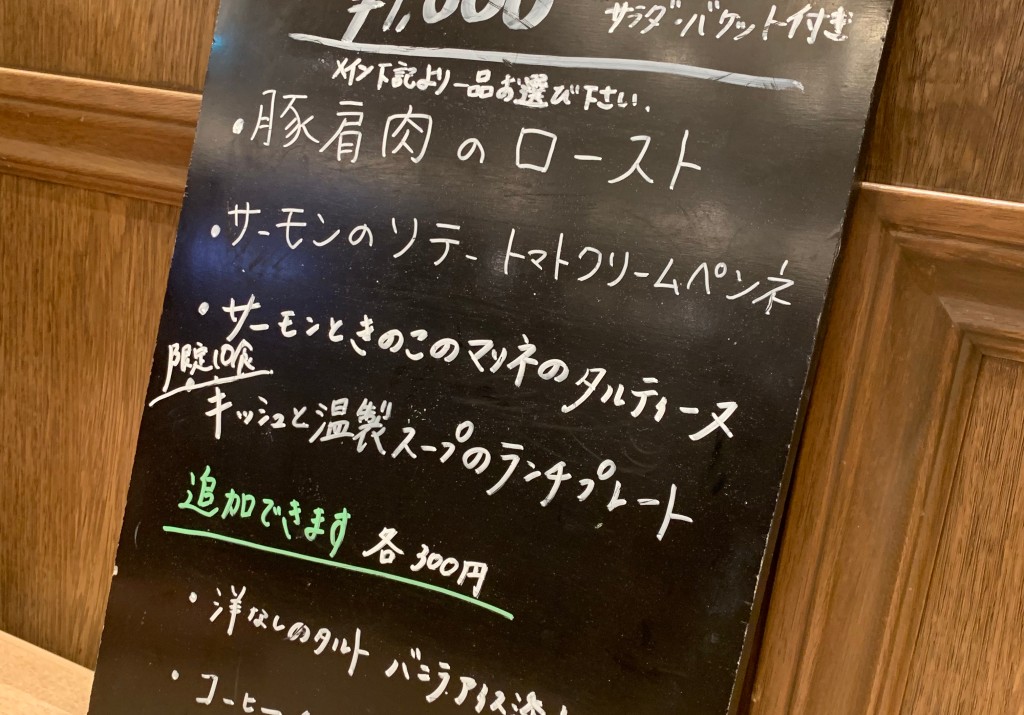 ¥1,000
サラダ・バケット付き
メイン下記より一品お選び下さい.
・豚肩肉のロースト
・サーモンのソテー トマトクリームペンネ
・サーモンときのこのマリネのタルティーヌ
限定10食
キッシュと温製スープのランチプレート
追加できます 各300円
・洋なしのタルト バニラアイス添
・コーヒー